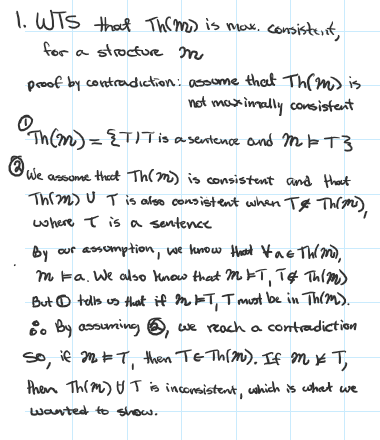 1. WTS that Th(m) is max. consistent,
for a structure m
proof by contradiction: assume that Th(m) is
not maximally consistent
① Th(m) = {T | T is a sentence and m ⊨ T}
② We assume that Th(m) is consistent and that
Th(m) ∪ T is also consistent when T ∉ Th(m),
where T is a sentence
By our assumption, we know that ∀a ∈ Th(m),
m ⊨ a. We also know that m ⊨ T, T ∉ Th(m)
But ① tells us that if m ⊨ T, T must be in Th(m).
∴ By assuming ②, we reach a contradiction
So, if m ⊨ T, then T ∈ Th(m). If m ⊭ T,
then Th(m) ∪ T is inconsistent, which is what we
wanted to show.